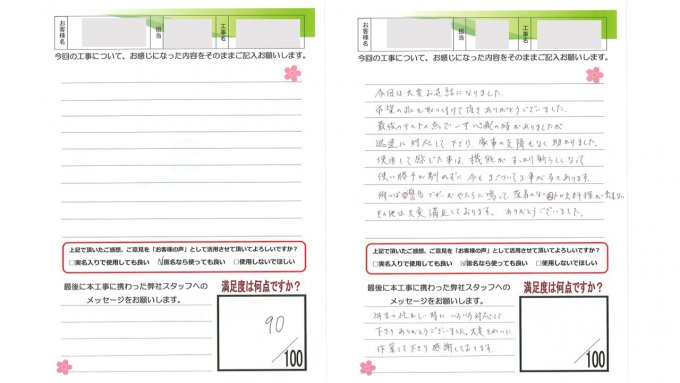 お客様名
担当
工事名
今回の工事について、お感じになった内容をそのままご記入お願いします。
上記で頂いたご感想、ご意見を「お客様の声」として活用させて頂いてよろしいですか？
□実名入りで使用しても良い □匿名なら使っても良い □使用しないでほしい
最後に本工事に携わった弊社スタッフへの
メッセージをお願いします。
満足度は何点ですか？
90
/100
お客様名
担当
工事名
今回の工事について、お感じになった内容をそのままご記入お願いします。
今回は大変お世話になりました
希望の品を取り付けて頂きありがとうございました。
最後のテストの点で一寸心配の時がありましたが
迅速に対応して下さり、家事の支障もなく助かりました。
使用して感じた事は、機能がすっかり新らしくなって
使い勝手が判らずに今もまごついてる事が多々あります。
例いば警告ブザーがやたらに鳴って、
その他は大変満足しております。ありがとうございました。
上記で頂いたご感想、ご意見を「お客様の声」として活用させて頂いてよろしいですか？
□実名入りで使用しても良い □匿名なら使っても良い □使用しないでほしい
最後に本工事に携わった弊社スタッフへの
メッセージをお願いします。
満足度は何点ですか？
年末の忙しい時に いろいろ対応して
下さりありがとうございました。大変きれいに
作業して下さり感謝しております。
/100